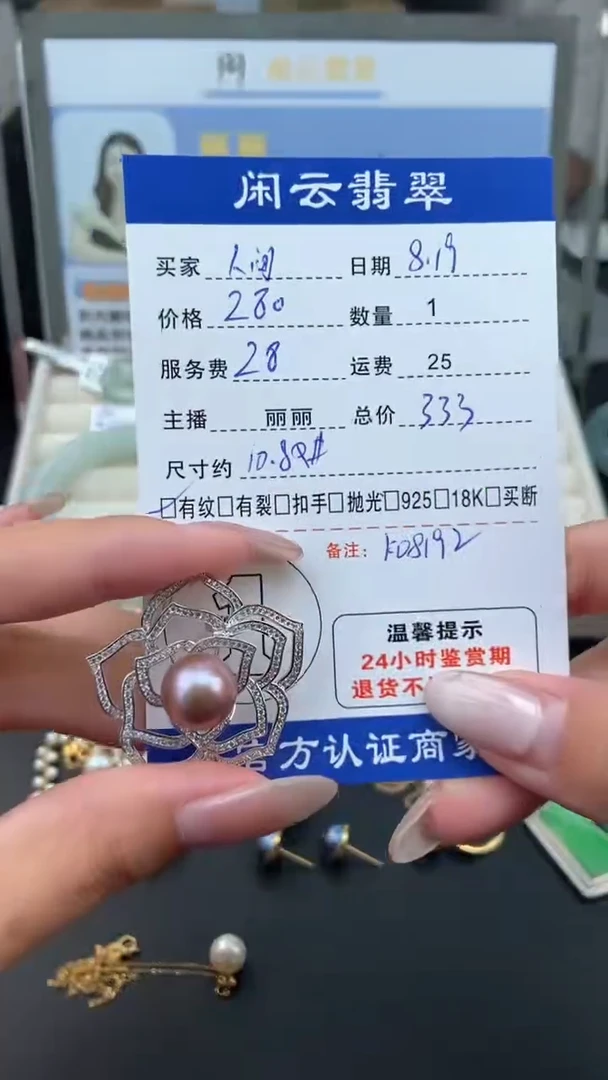 闲云翡翠
买家 人间 日期 8.19
价格 280 数量 1
服务费 28 运费 25
主播 丽丽 总价 333
尺寸约 10.8
□有纹□有裂□扣手□抛光□925□18K□买断
备注: K08192
温馨提示
24小时鉴赏期
退货不
官方认证商家